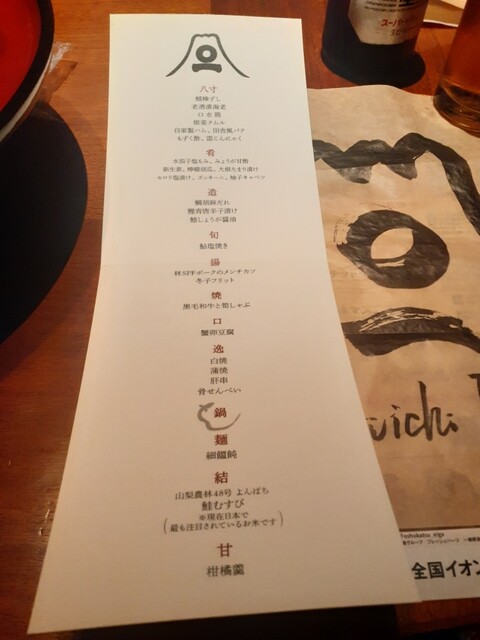 八寸
鯖棒すし
老酒漬海老
口水鶏
自家製ハム、田舎風パテ
もずく酢、雲にんにゃく
肴
水茄子塩もみ、みょうが甘酢
新生姜、檸檬胡瓜、大根たまり漬け
セロリ塩漬け、ズッキーニ、柚子キャベツ
造
鯛胡麻だれ
鰹青唐辛子漬け
鯵しょうが醤油
旬
鮎塩焼き
揚
林SPFポークのメンチカツ
冬子フリット
焼
黒毛和牛と筍しゃぶ
口
蟹卵豆腐
逸
白焼
蒲焼
肝串
骨せんべい
鍋
麺
細饂飩
結
山梨農林48号 よんぱち
鮭むすび
※現在日本で
(最も注目されているお米です)
甘
柑橘羹
スーパー
全国イオン